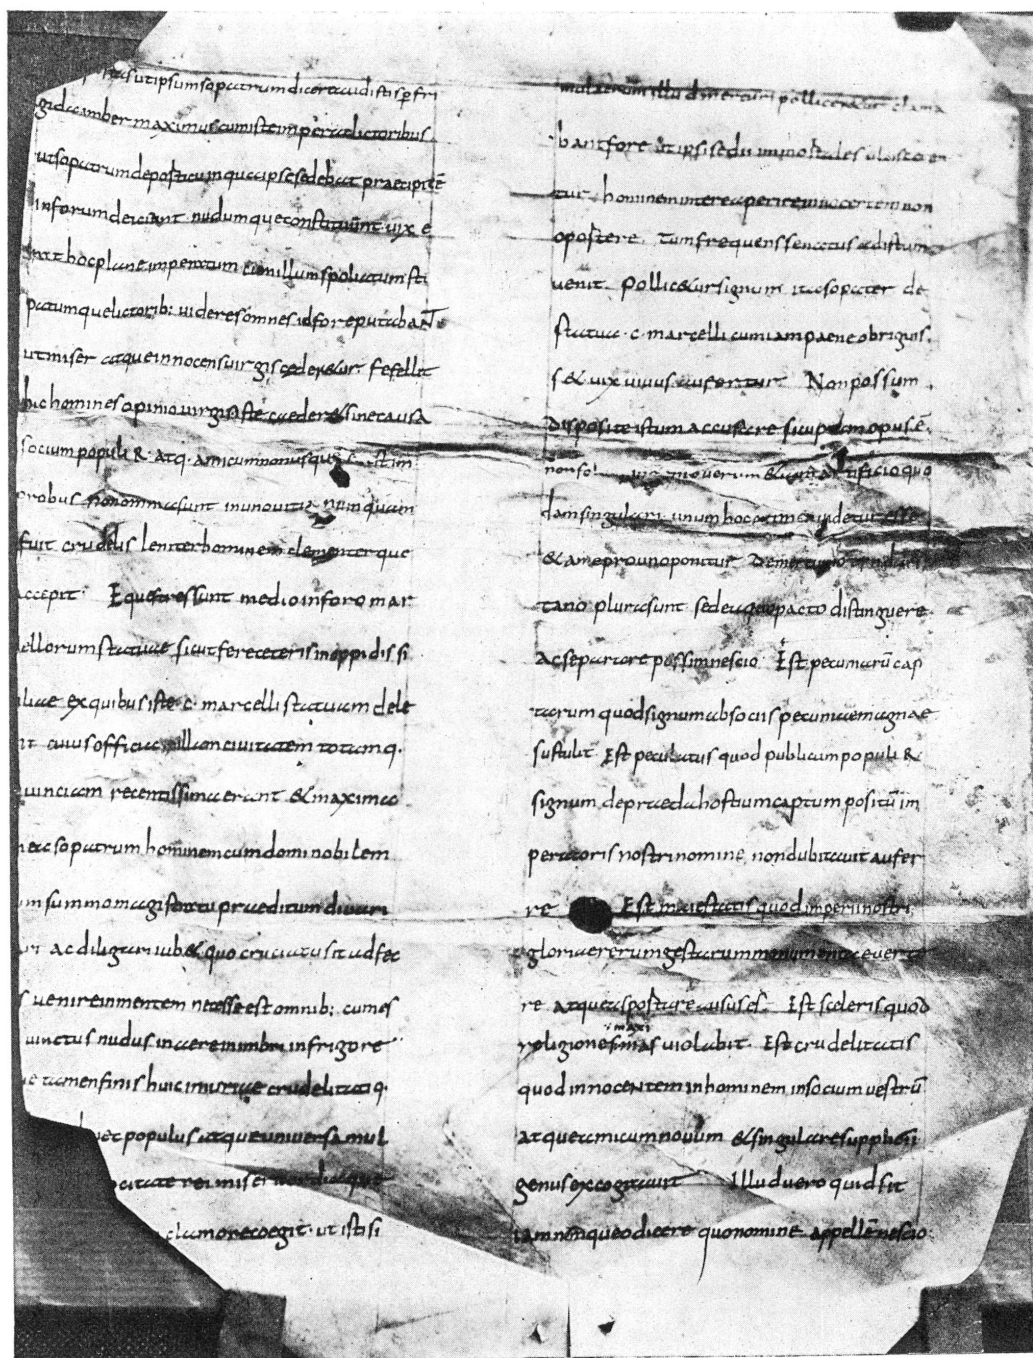 utipsum sopatrum dicere audistis p fri
gida amber maximus cum iste imperat lictoribus
ut sopatrum de porticu in qua ipse sedebat praecipitē
in forum deiciant nudumque constituunt. vix e
rat hoc plane imperatum cum illum spoliatum sti
patumque lictorib; videres omnes id fore putabant
ut miser atque innocens virgis cederetur fefellit
hic homines opinio virgis iste caederet sine causa
socium populi R atq. amicum non usque
probus non omnia sunt in uno vitia nunquam
fuit crudelis leniter hominem clementerque
accepit. Equestres sunt medio in foro mar
cellorum statuae sicut fere ceteris in oppidis si
liae ex quibus iste c. marcelli statuam dele
git cuius officia illam civitatem totamq.
vinciam recentissima erant & maxima
in ea sopatrum hominem cum domi nobilem
um summo magistratu praeditum divari
cari ac diligari iub& quo cruciatu sit adfec
venire in mentem necesse est omnib; cum es
vinctus nudus in aere in imbri in frigore
tamen finis huic iniuriae crudelitatiq.
populus atque universa mul
atrocitate rei misericordiaque
clamore coegit. ut is ti si
mulacrum illud mercuri polliceretur clama
bant fore ut ipsi se di immortales ulcisceren
tur. hominem interea perire innocentem non
oportere. Tum frequens senatus ad istum
venit. Pollicetur signum ita sopater de
statua .c. marcelli cum iam paene obriguis
s& vix vivus aufertur Non possum
disposite istum accusare si cupiam opus ē
non so ingenio verum & artificio quo
dam singulari unum hoc crimen videtur esse
& a me pro uno ponitur De mercurio tynda
ritano plura sunt sed ea quo pacto distinguere
ac separare possim nescio. Est pecuniarū cap
tarum quod signum ab sociis pecuniae magnae
sustulit. Est peculatus quod publicum populi R
signum de praeda hostium captum positū im
peratoris nostri nomine non dubitavit aufer
re Est maiestatis quod imperii nostri
gloriae rerum gestarum monumenta everte
re atque asportare ausus es. Est sceleris quod
religiones maximas violabit. Est crudelitatis
quod innocentem in hominem in socium vestrū
atque amicum novum & singulare supplicii
genus excogitavit Illud vero quid sit
iam non queo dicere quo nomine appellē nescio